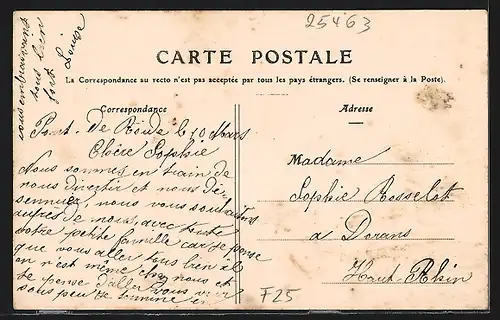 25463
vous embrassons
tous bien
fort Louise
CARTE POSTALE
La Correspondance au recto n'est pas acceptée par tous les pays étrangers. (Se renseigner à la Poste).
Correspondance
Adresse
Pont-de Roide le 10 Mars
Chère Sophie
Nous sommes en train de
nous divertir et nous
nous vous souhaitons
auprès de nous, avec toute
votre petite famille car je pense
que vous aller tous bien
on n'est même chez nous et
je pense d'aller vous voir
sous peu
Madame
Sophie Rosselot
a Dorans
Haut-Rhin
F25